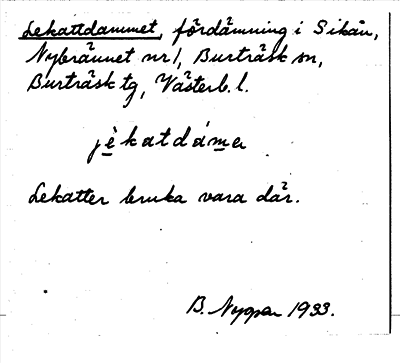 Lekattdammet, fördämning i Sikån,
Nybrännet nr 1, Burträsk sn,
Burträsk tg, Västerb. l.
jèkatdáme
Lekatter bruka vara där.
B. Nyman 1933.